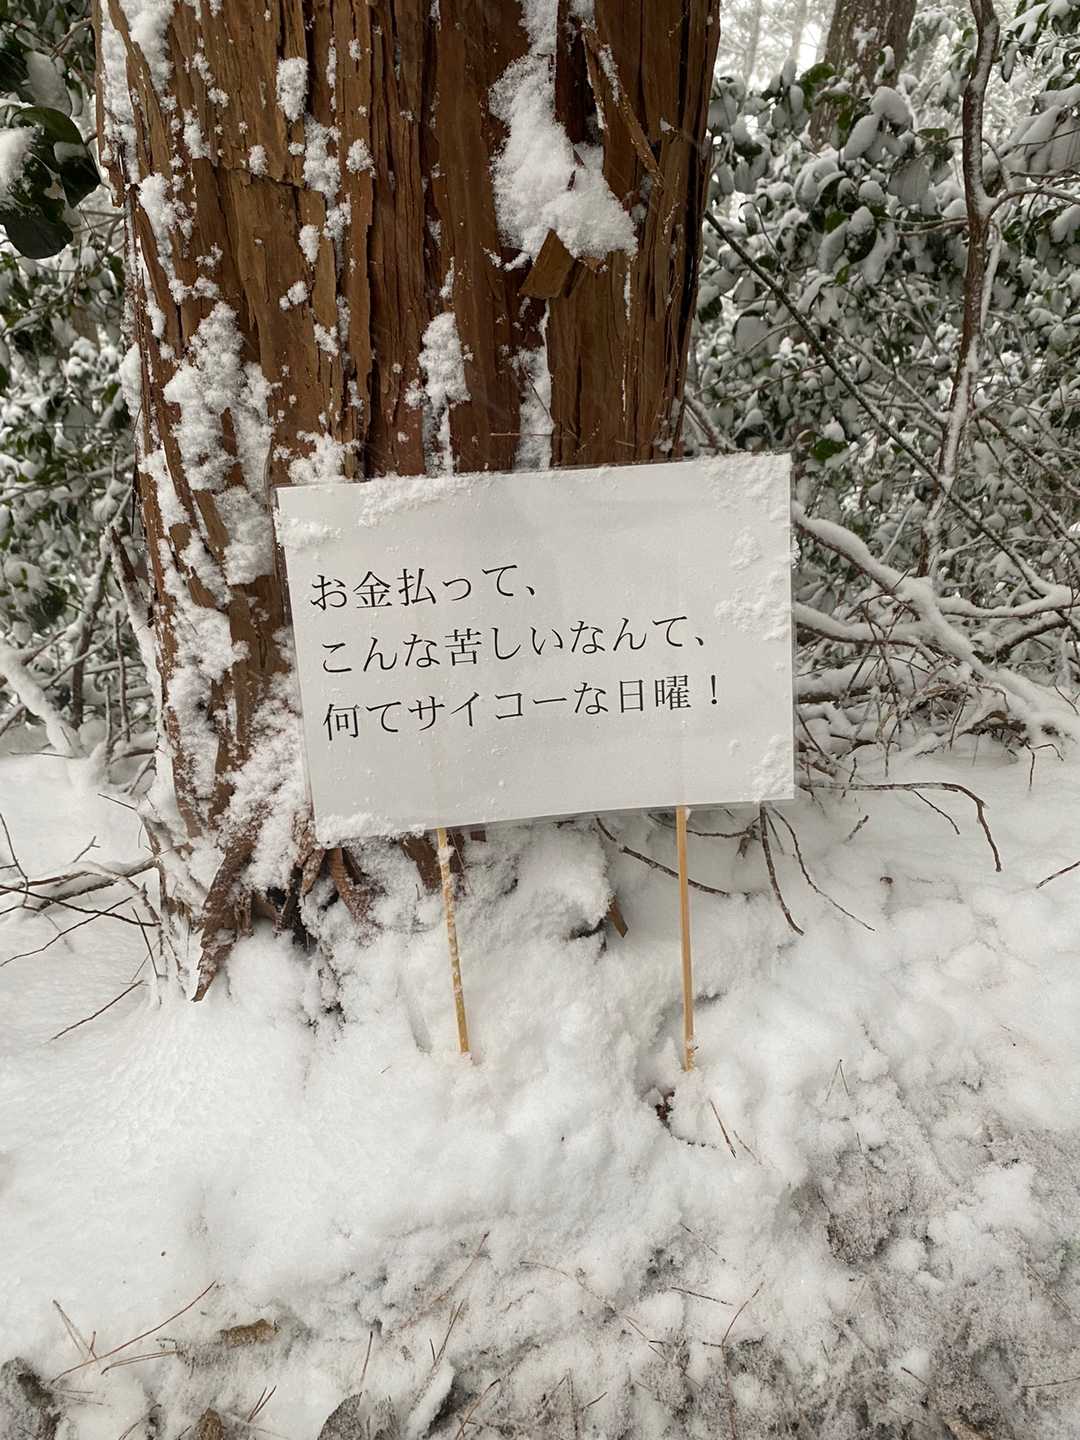 お金払って、
こんな苦しいなんて、
何てサイコーな日曜！